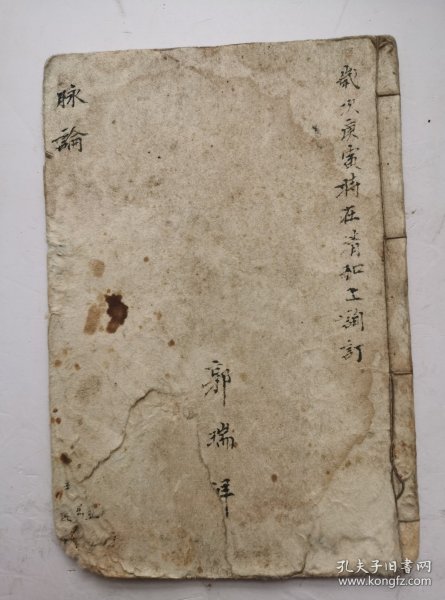 歲次庚寅時在清和上澣訂
郭瑞祥
脉論
孔夫子旧书网
www.kongfz.com